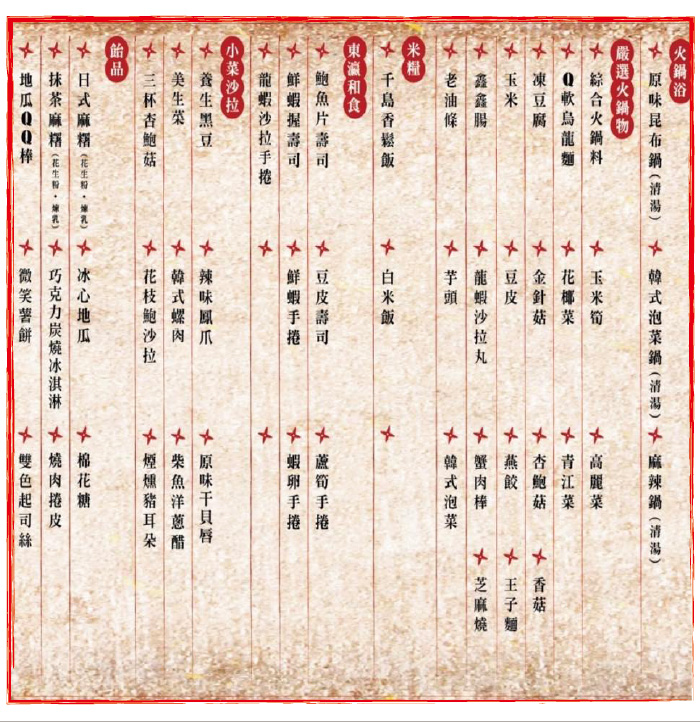 火鍋浴
原味昆布鍋(清湯)
韓式泡菜鍋(清湯)
麻辣鍋(清湯)
嚴選火鍋物
綜合火鍋料
玉米筍
高麗菜
Q軟烏龍麵
花椰菜
青江菜
凍豆腐
金針菇
杏鮑菇
香菇
玉米
豆皮
燕餃
王子麵
鑫鑫腸
龍蝦沙拉丸
蟹肉棒
芝麻燒
老油條
芋頭
韓式泡菜
米糧
千島香鬆飯
白米飯
東瀛和食
鮑魚片壽司
豆皮壽司
蘆筍手捲
鮮蝦握壽司
鮮蝦手捲
蝦卵手捲
龍蝦沙拉手捲
小菜沙拉
養生黑豆
辣味鳳爪
原味干貝唇
美生菜
韓式螺肉
柴魚洋蔥醋
三杯杏鮑菇
花枝鮑沙拉
煙燻豬耳朵
飴品
日式麻糬(花生粉・煉乳)
冰心地瓜
棉花糖
抹茶麻糬(花生粉・煉乳)
巧克力炭燒冰淇淋
燒肉捲皮
地瓜QQ棒
微笑薯餅
雙色起司絲